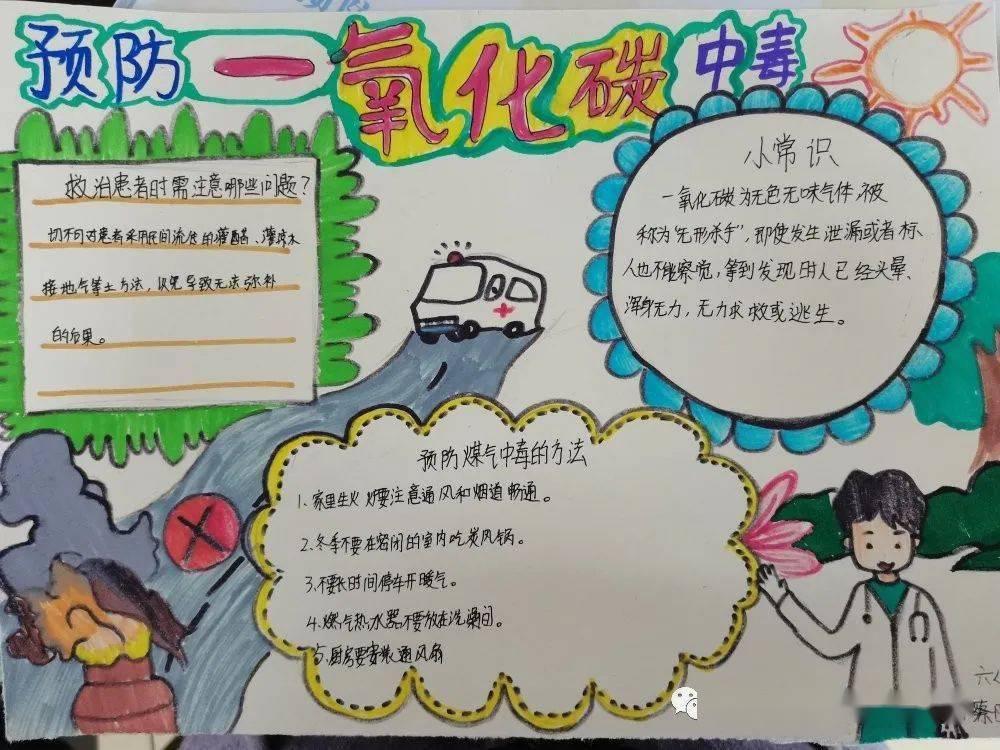 预防一氧化碳中毒
救治患者时需注意哪些问题？
切不可对患者采用民间流传的灌醋、灌酸水
接地气等土方法，以免导致无法弥补
的后果。
小常识
一氧化碳为无色无味气体，被
称为"无形杀手"，即使发生泄漏或者标
人也不能察觉，等到发现时人已经头晕、
浑身无力，无力求救或逃生。
预防煤气中毒的方法
1、家里生火炉要注意通风和烟道畅通。
2、冬季不要在密闭的室内吃炭风锅。
3、不要长时间停车开暖气。
4、燃气热水器不要放在洗澡间。
5、厨房要安装通风扇
六
秦